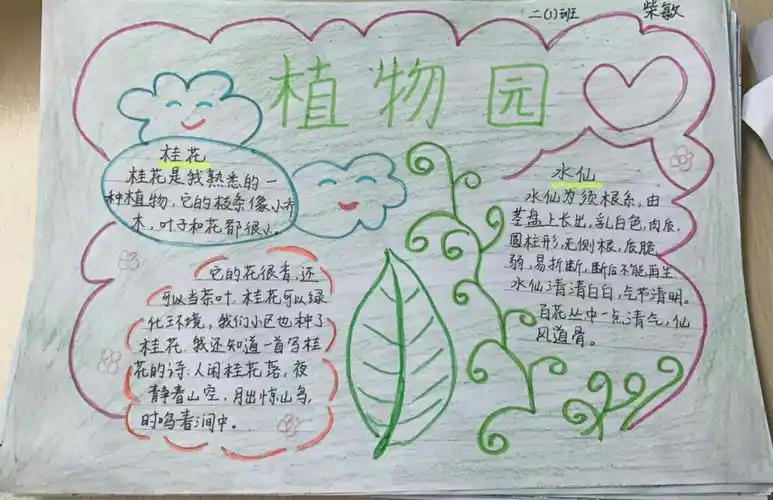 二(1)班 柴敏
植物园
桂花
桂花是我熟悉的一
种植物,它的枝条像小乔
木,叶子和花都很小.
它的花很香,还
可以当茶叶.桂花可以绿
化环境,我们小区也种了
桂花.我还知道一首写桂
花的诗:人闲桂花落,夜
静春山空,月出惊山鸟,
时鸣春涧中。
水仙
水仙为须根系,由
茎盘上长出,乳白色,肉质,
圆柱形,无侧根,质脆
弱,易折断,断后不能再生
水仙清清白白,气节清明。
百花丛中一点清气,仙
风道骨。